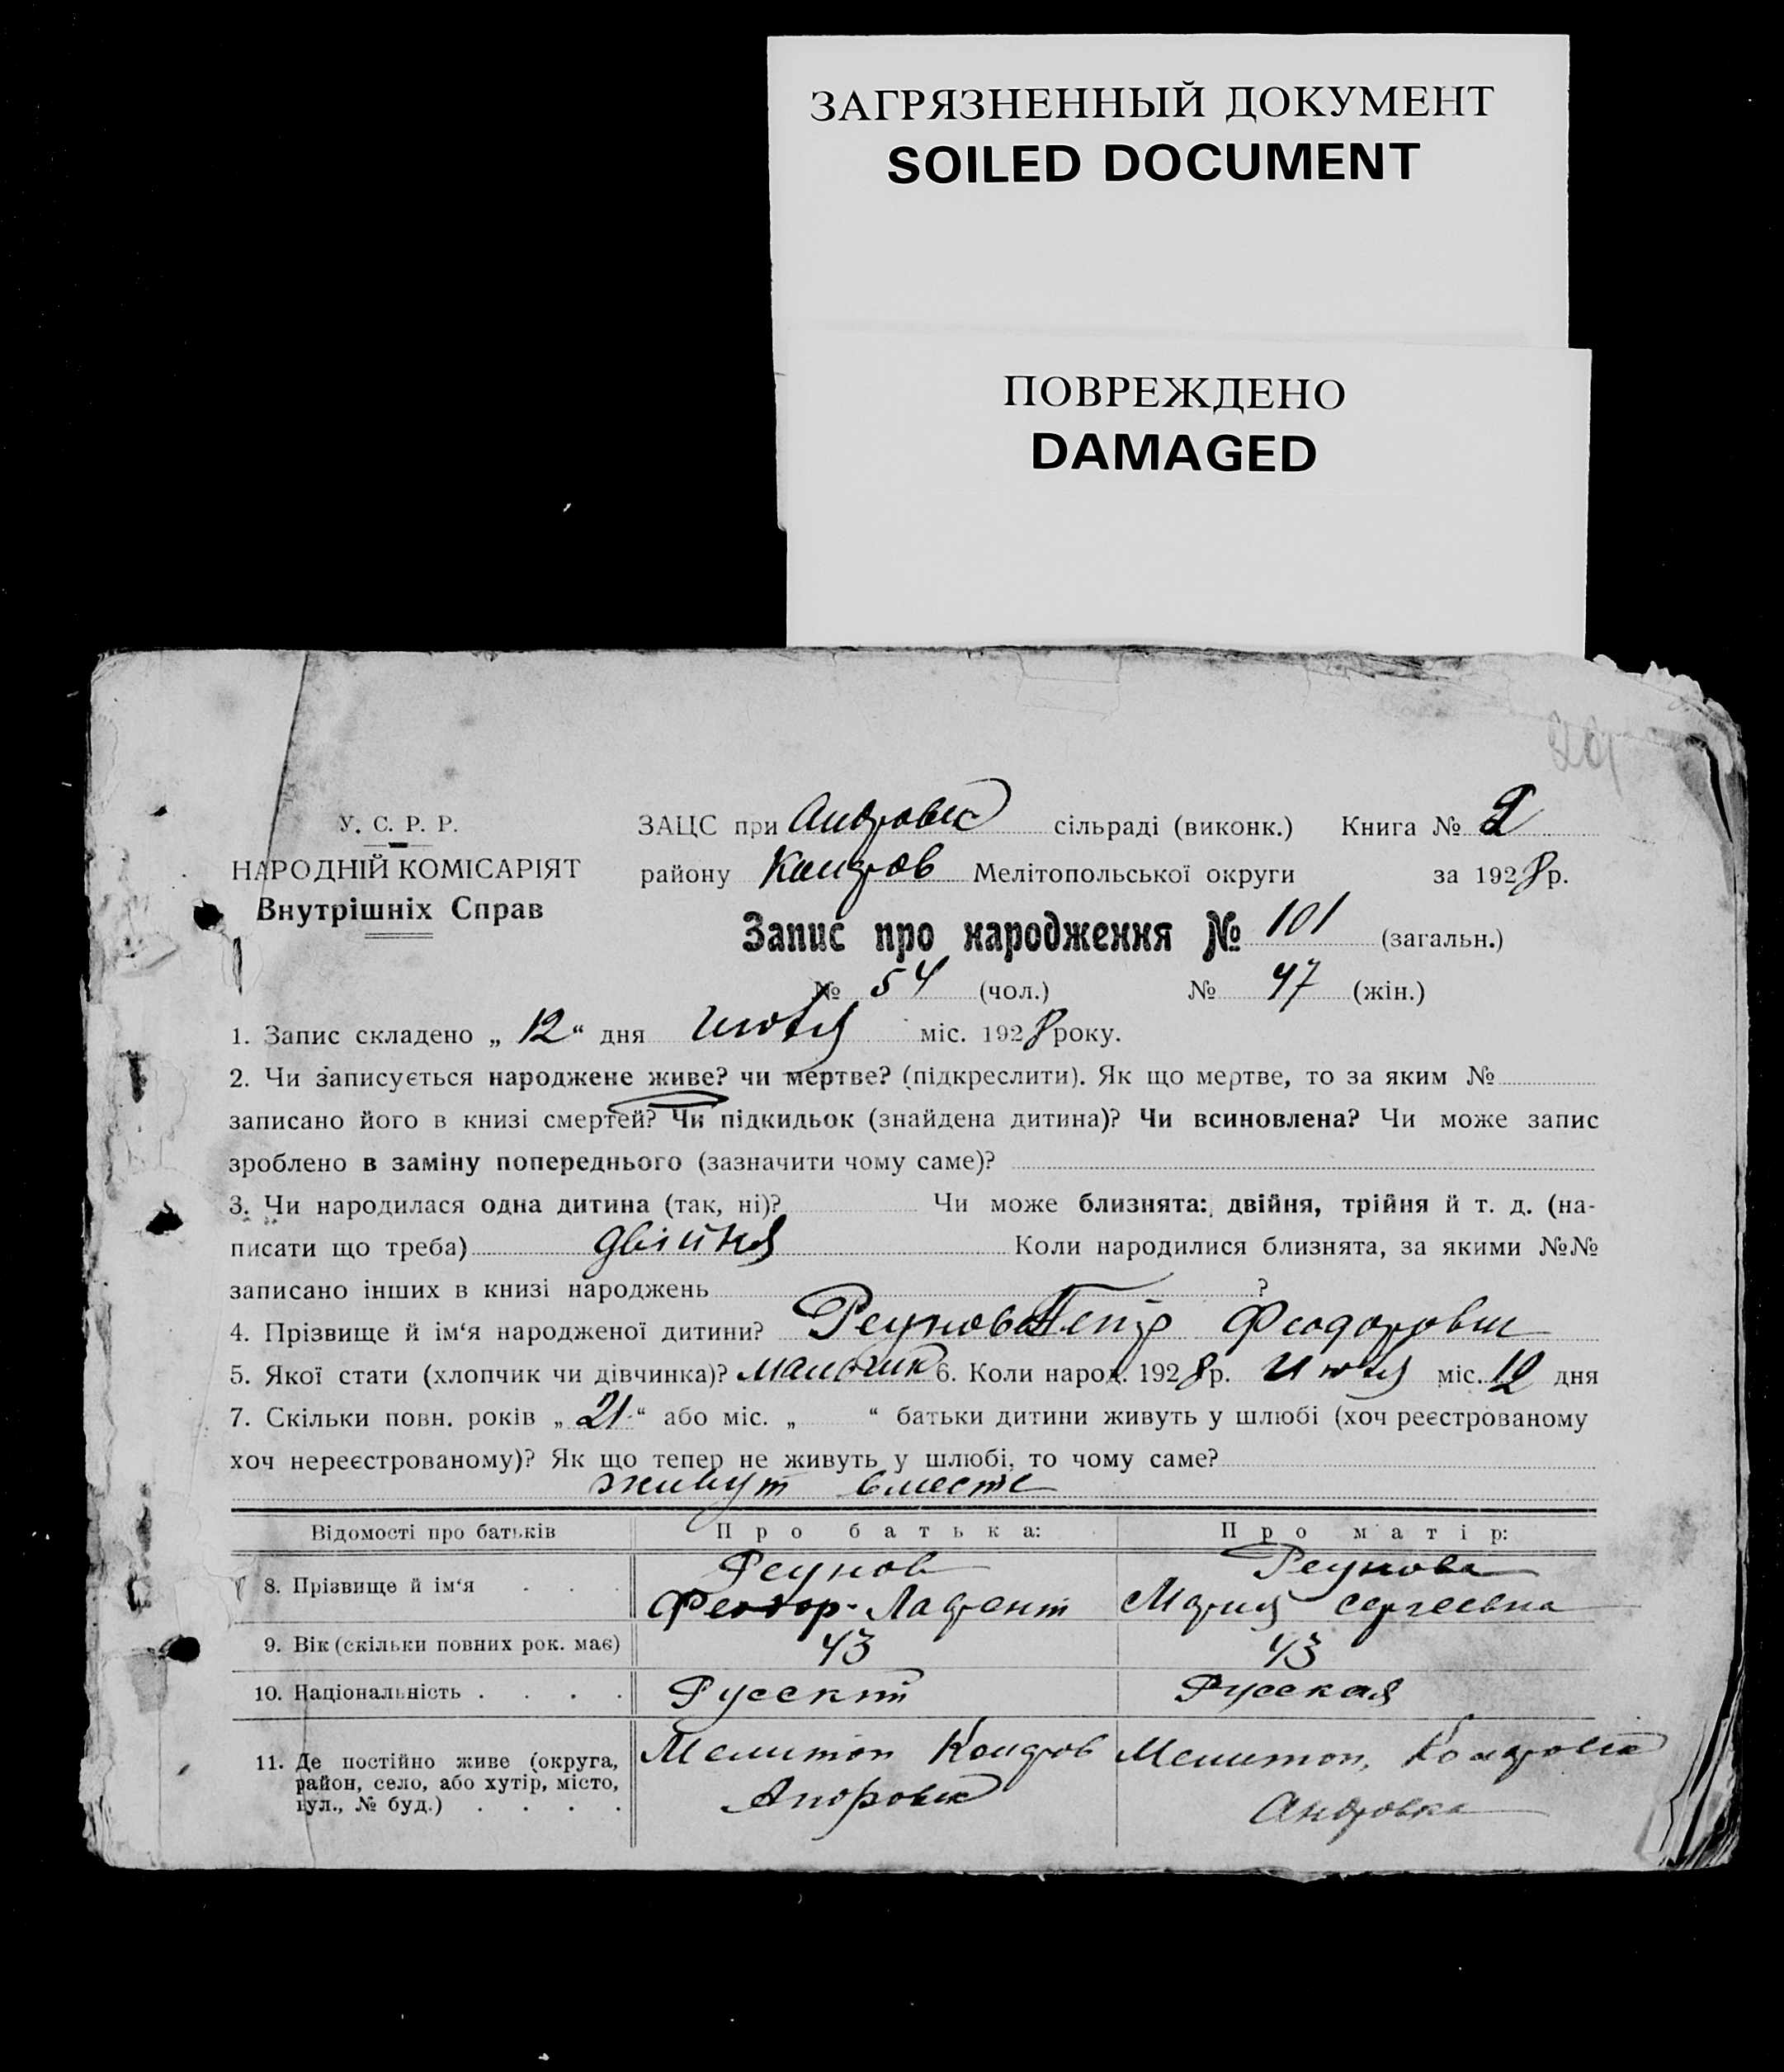 ЗАГРЯЗНЕННЫЙ ДОКУМЕНТ
SOILED DOCUMENT
ПОВРЕЖДЕНО
DAMAGED
У. С. Р. Р.
НАРОДНІЙ КОМІСАРІЯТ
Внутрішніх Справ
ЗАЦС при Андровск сільраді (виконк.) Книга № 2
району Кандров Мелітопольської округи за 1928 р.
Запис про народження № 101 (загальн.)
№ 54 (чол.) № 47 (жін.)
1. Запис складено „ 12 “ дня Июля міс. 1928 року.
2. Чи записується народжене живе? чи мертве? (підкреслити). Як що мертве, то за яким №
записано його в книзі смертей? Чи підкидьок (знайдена дитина)? Чи всиновлена? Чи може запис
зроблено в заміну попереднього (зазначити чому саме)?
3. Чи народилася одна дитина (так, ні)? Чи може близнята: двійня, трійня й т. д. (на-
писати що треба) двійня Коли народилися близнята, за якими №№
записано інших в книзі народжень ?
4. Прізвище й ім‘я народженої дитини? Реунов Петр Феодорович
5. Якої стати (хлопчик чи дівчинка)? мальчик 6. Коли народ. 1928 р. Июля міс. 12 дня
7. Скільки повн. років „ 21 “ або міс. „ “ батьки дитини живуть у шлюбі (хоч реєстрованому
хоч нереєстрованому)? Як що тепер не живуть у шлюбі, то чому саме?
живут вместе
Відомості про батьків Про батька: Про матір:
8. Прізвище й ім‘я Реунов Реунова
Феодор Лаврент Мария Сергеевна
9. Вік (скільки повних рок. має) 43 43
10. Національність . . . . Русский Русская
11. Де постійно живе (округа, Мелитоп Кандров Мелитоп,
район, село, або хутір, місто,
вул., № буд.) . . . . Андровк Андровка